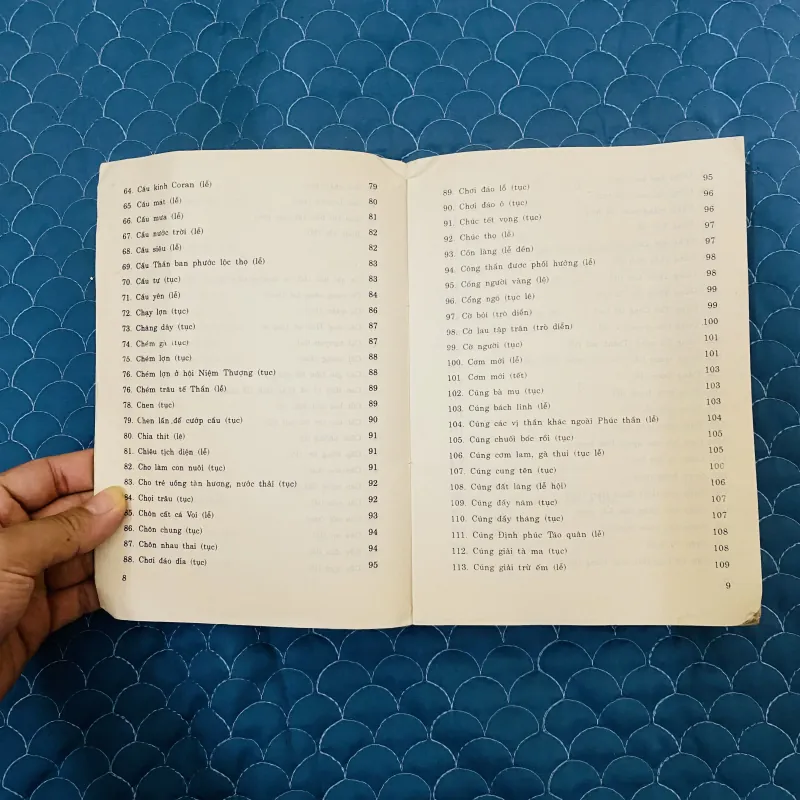 64. Cầu kinh Coran (lễ) 79
65 Cầu mát (lễ) 80
66. Cầu mưa (lễ) 81
67. Cầu nước trời (lễ) 82
68. Cầu siêu (lễ) 82
69. Cầu Thần ban phước lộc thọ (lễ) 83
70. Cầu tự (tục) 83
71. Cầu yên (lễ) 84
72. Chạy lợn (tục) 86
73. Chăng dây (tục) 87
74. Chém gà (tục) 87
75. Chém lợn (tục) 88
76. Chém lợn ở hội Niệm Thượng (tục) 88
76. Chém trâu tế Thần (lễ) 89
78. Chen (tục) 89
79. Chen lấn để cướp cầu (tục) 90
80. Chia thịt (lễ) 91
81. Chiêu tịch điện (lễ) 91
82. Cho làm con nuôi (tục) 91
83. Cho trẻ uống tàn hương, nước thải (tục) 92
84. Chọi trâu (tục) 92
85. Chôn cất cá Voi (lễ) 93
86. Chôn chung (tục) 94
87. Chôn nhau thai (tục) 94
88. Chơi đáo đĩa (tục) 95
8
89. Chơi đáo lỗ (tục) 95
90. Chơi đáo ô (tục) 96
91. Chúc tết vọng (tục) 96
92. Chúc thọ (lễ) 97
93. Cồn làng (lễ đền) 97
94. Công thần được phối hưởng (lễ) 98
95. Cống người vàng (lệ) 98
96. Cổng ngõ (tục lệ) 99
97. Cờ bỏi (trò diễn) 99
98. Cờ lau tập trận (trò diễn) 100
99. Cờ người (tục) 101
100. Cơm mới (lễ) 101
101 Cơm mới (tết) 103
102. Cúng bà mụ (tục) 103
103. Cúng bách linh (lễ) 103
104. Cúng các vị thần khác ngoài Phúc thần (lễ) 104
105. Cúng chuối bốc rồi (tục) 105
106. Cúng cơm lam, gà thui (tục lễ) 105
107. Cúng cung tên (tục) 106
108. Cúng đất làng (lễ hội) 106
109. Cúng đầy năm (tục) 107
110. Cúng đầy tháng (tục) 107
111. Cúng Định phúc Táo quân (lễ) 108
112. Cúng giải tà ma (tục) 108
113. Cúng giải trừ ếm (lễ) 109
9